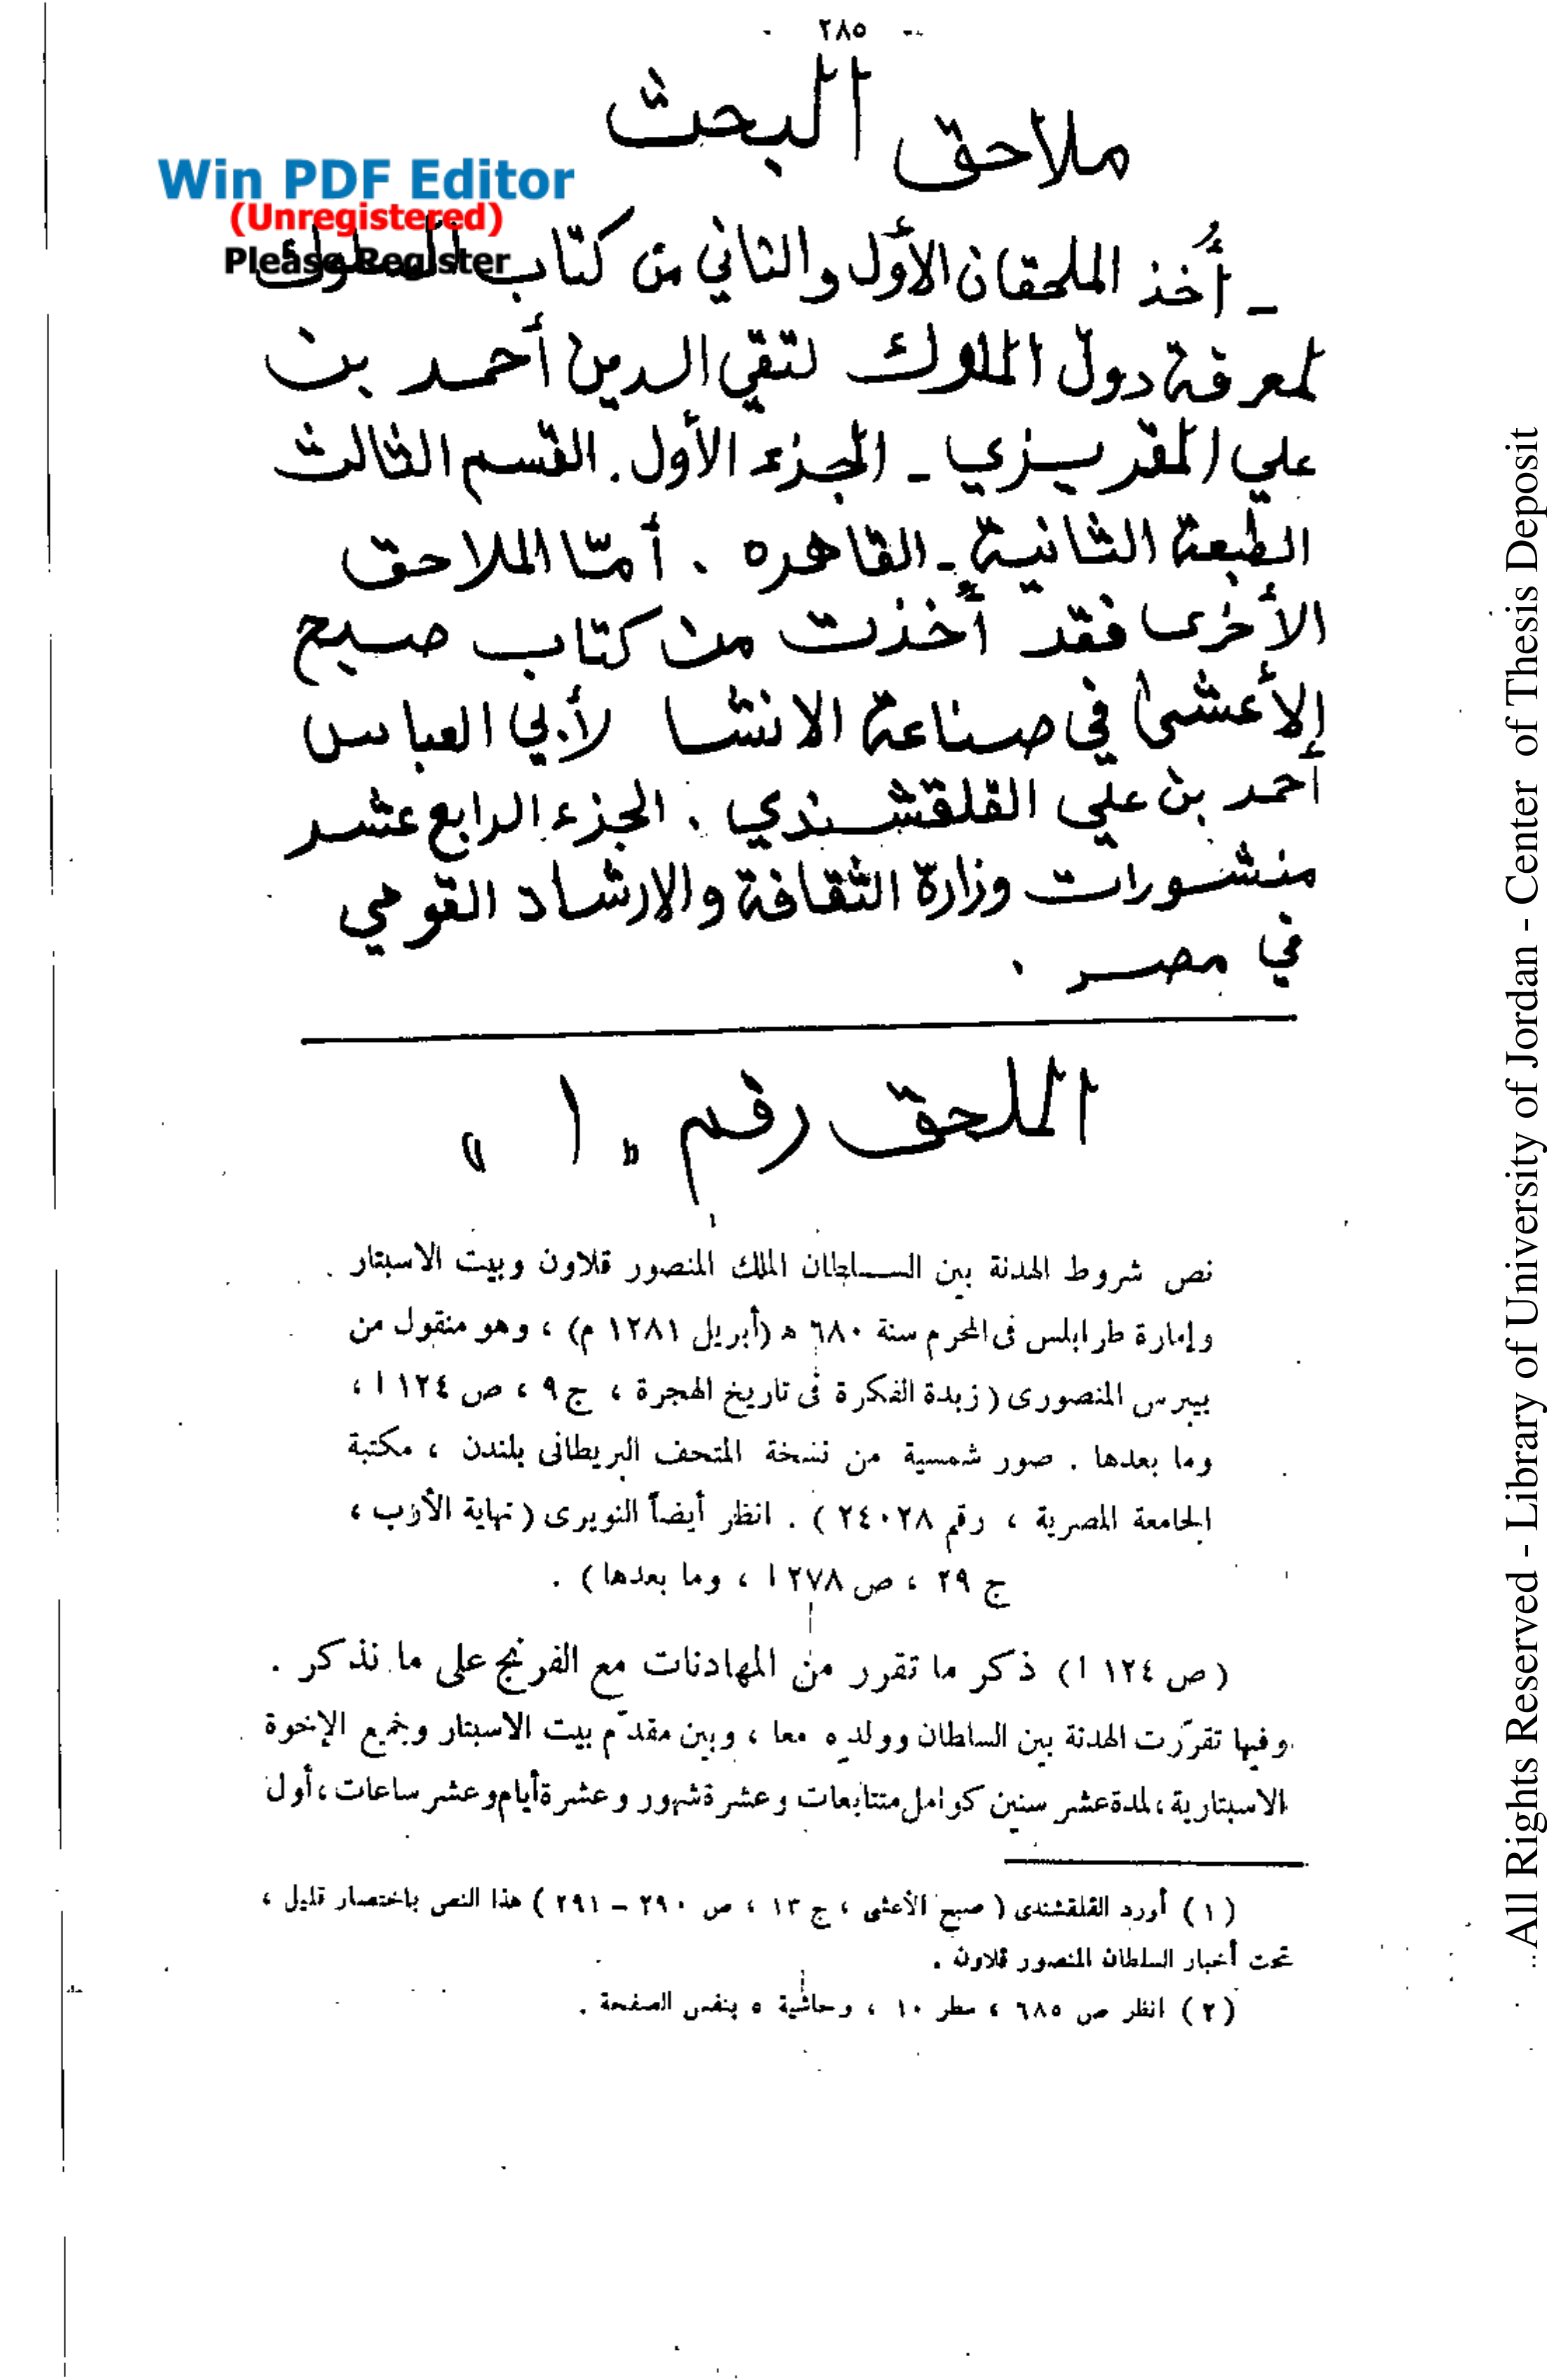 - ٢٨٥ -
ملاحق البحث
Win PDF Editor
(Unregistered)
Please Register
ـ أُخذ الملحقان الأوّل والثاني من كتاب السلوك
لمعرفة دول الملوك لتقي الدين أحمد بن
علي المقريزي ـ الجزء الأول. القسم الثالث
الطبعة الثانية ـ القاهره . أمّا الملاحق
الأخرى فقد أُخذت من كتاب صبح
الأعشى في صناعة الانشا لأبي العباس
أحمد بن علي القلقشندي . الجزء الرابع عشر
منشورات وزارة الثقافة والإرشاد القومي
في مصر .
الملحق رقم « ١ »
نص شروط الهدنة بين السلطان الملك المنصور قلاون وبيت الاسبتار
وإمارة طرابلس فى المحرم سنة ٦٨٠ ه (أبريل ١٢٨١ م) ، وهو منقول من
بيبرس المنصورى ( زبدة الفكرة فى تاريخ الهجرة ، ج ٩ ، ص ١٢٤ ا ،
وما بعدها . صور شمسية من نسخة المتحف البريطانى بلندن ، مكتبة
الجامعة المصرية ، رقم ٢٤٠٢٨ ) . انظر أيضاً النويرى ( نهاية الأرب ،
ج ٢٩ ، ص ٢٧٨ ا ، وما بعدها ) .
( ص ١٢٤ ا ) ذكر ما تقرر من المهادنات مع الفرنج على ما نذكر .
وفيها تقرّرت الهدنة بين السلطان وولده معا ، وبين مقدّم بيت الاسبتار وجميع الإخوة
الاسبتارية ، لمدة عشر سنين كوامل متتابعات وعشرة شهور وعشرة أيام وعشر ساعات ، أول
( ١ ) أورد القلقشندى ( صبح الأعشى ، ج ١٣ ، ص ٢٩٠ – ٢٩١ ) هذا النص باختصار قليل ،
تحت أخبار السلطان المنصور قلاون .
( ٢ ) انظر ص ٦٨٥ ، سطر ١٠ ، وحاشية ٥ بنفس الصفحة .
All Rights Reserved - Library of University of Jordan - Center of Thesis Deposit